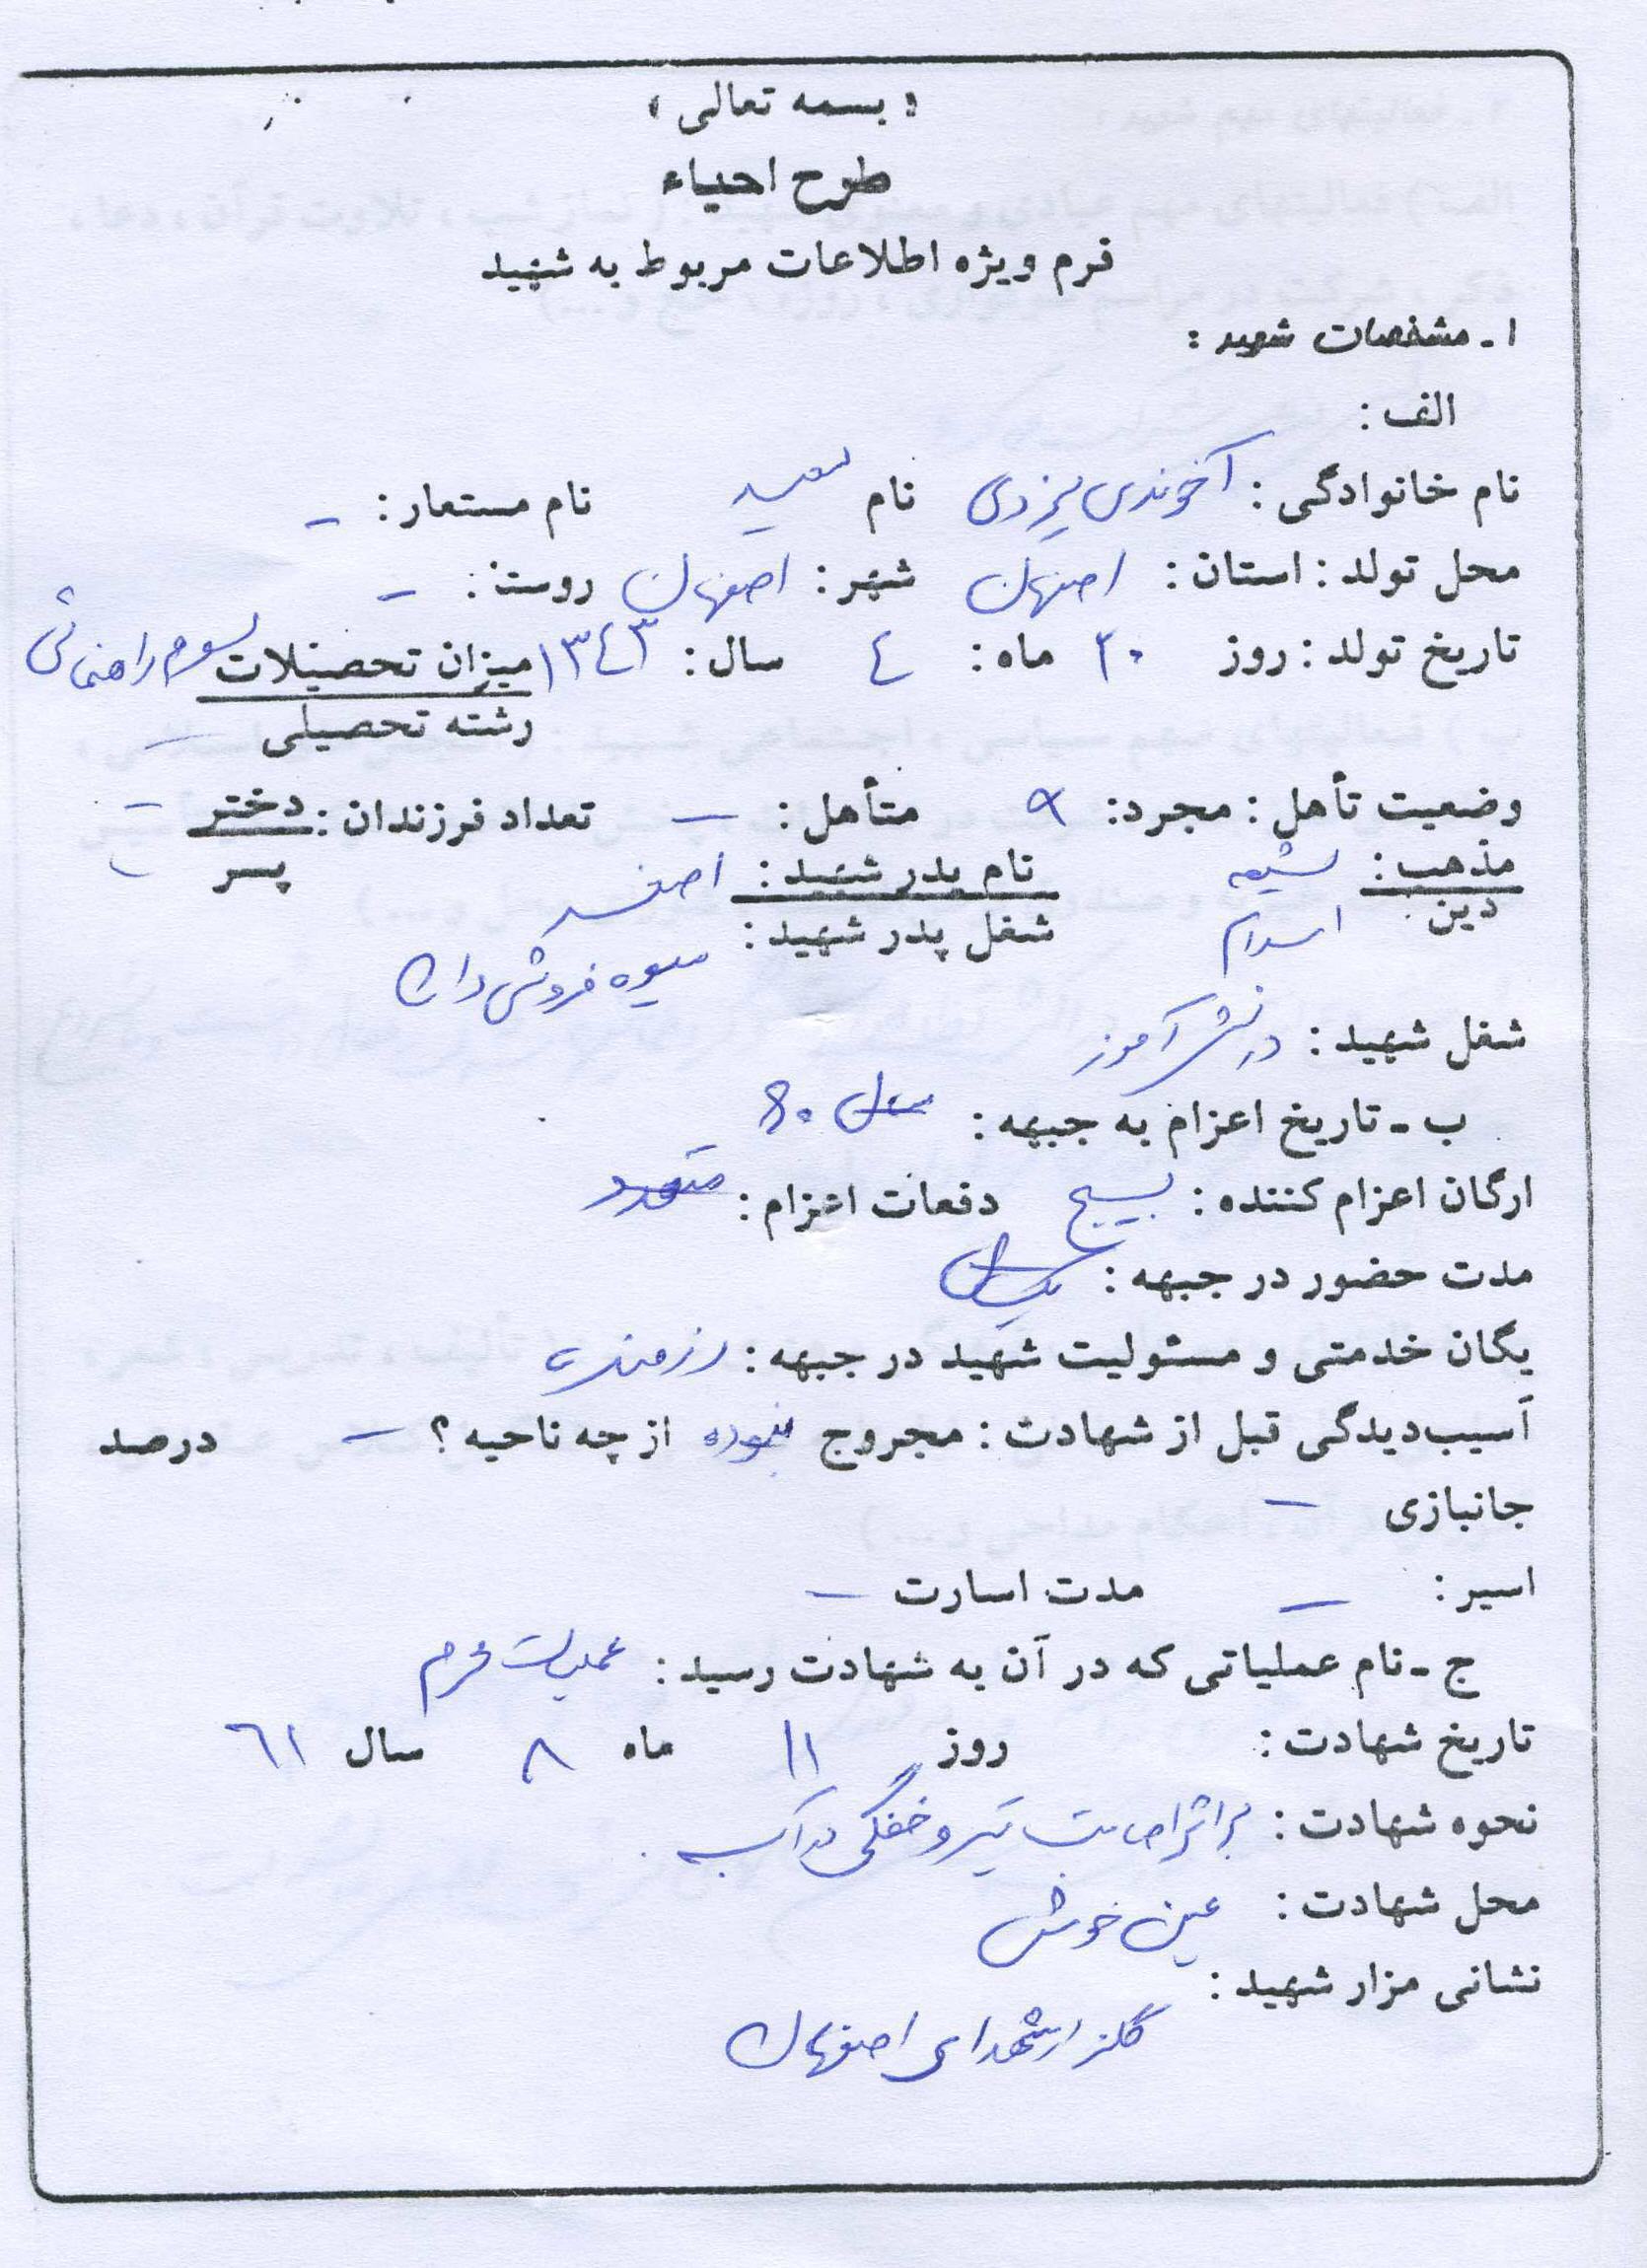 « بسمه تعالی »
طرح احیاء
فرم ویژه اطلاعات مربوط به شهید
۱ ـ مشخصات شهید :
الف :
نام خانوادگی : آخوندی یزدی نام سعید نام مستعار : –
محل تولد : استان : اصفهان شهر : اصفهان روستا : –
تاریخ تولد : روز ۲۰ ماه : ٤ سال : ۱۳٤۳ میزان تحصیلات سوم راهنمائی
رشته تحصیلی –
وضعیت تأهل : مجرد : متأهل : – تعداد فرزندان : دختر –
پسر –
مذهب : شیعه نام پدر شهید : اصغر
دین : اسلام شغل پدر شهید : میوه فروشی دارد
شغل شهید : دانش آموز
ب ـ تاریخ اعزام به جبهه : سال ٦۰
ارگان اعزام کننده : بسیج دفعات اعزام : متعدد
مدت حضور در جبهه : یکسال
یگان خدمتی و مسئولیت شهید در جبهه : رزمنده
آسیب‌دیدگی قبل از شهادت : مجروح نبوده از چه ناحیه ؟ – درصد
جانبازی –
اسیر : – مدت اسارت –
ج ـ نام عملیاتی که در آن به شهادت رسید : عملیات محرم
تاریخ شهادت : روز ۱۱ ماه ۸ سال ٦۱
نحوه شهادت : بر اثر اصابت تیر و خفگی در آب .
محل شهادت : عین خوش
نشانی مزار شهید :
گلزار شهدای اصفهان